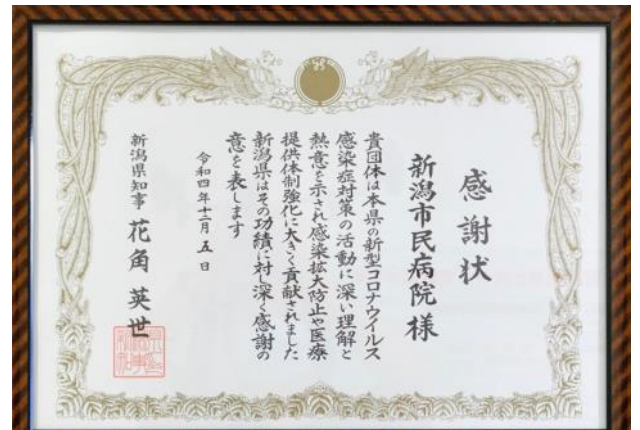 感謝状
新潟市民病院様
貴団体は本県の新型コロナウイルス
感染症対策の活動に深い理解と
熱意を示され感染拡大防止や医療
提供体制強化に大きく貢献されました
新潟県はその功績に対し深く感謝の
意を表します
令和四年十二月五日
新潟県知事 花角英世